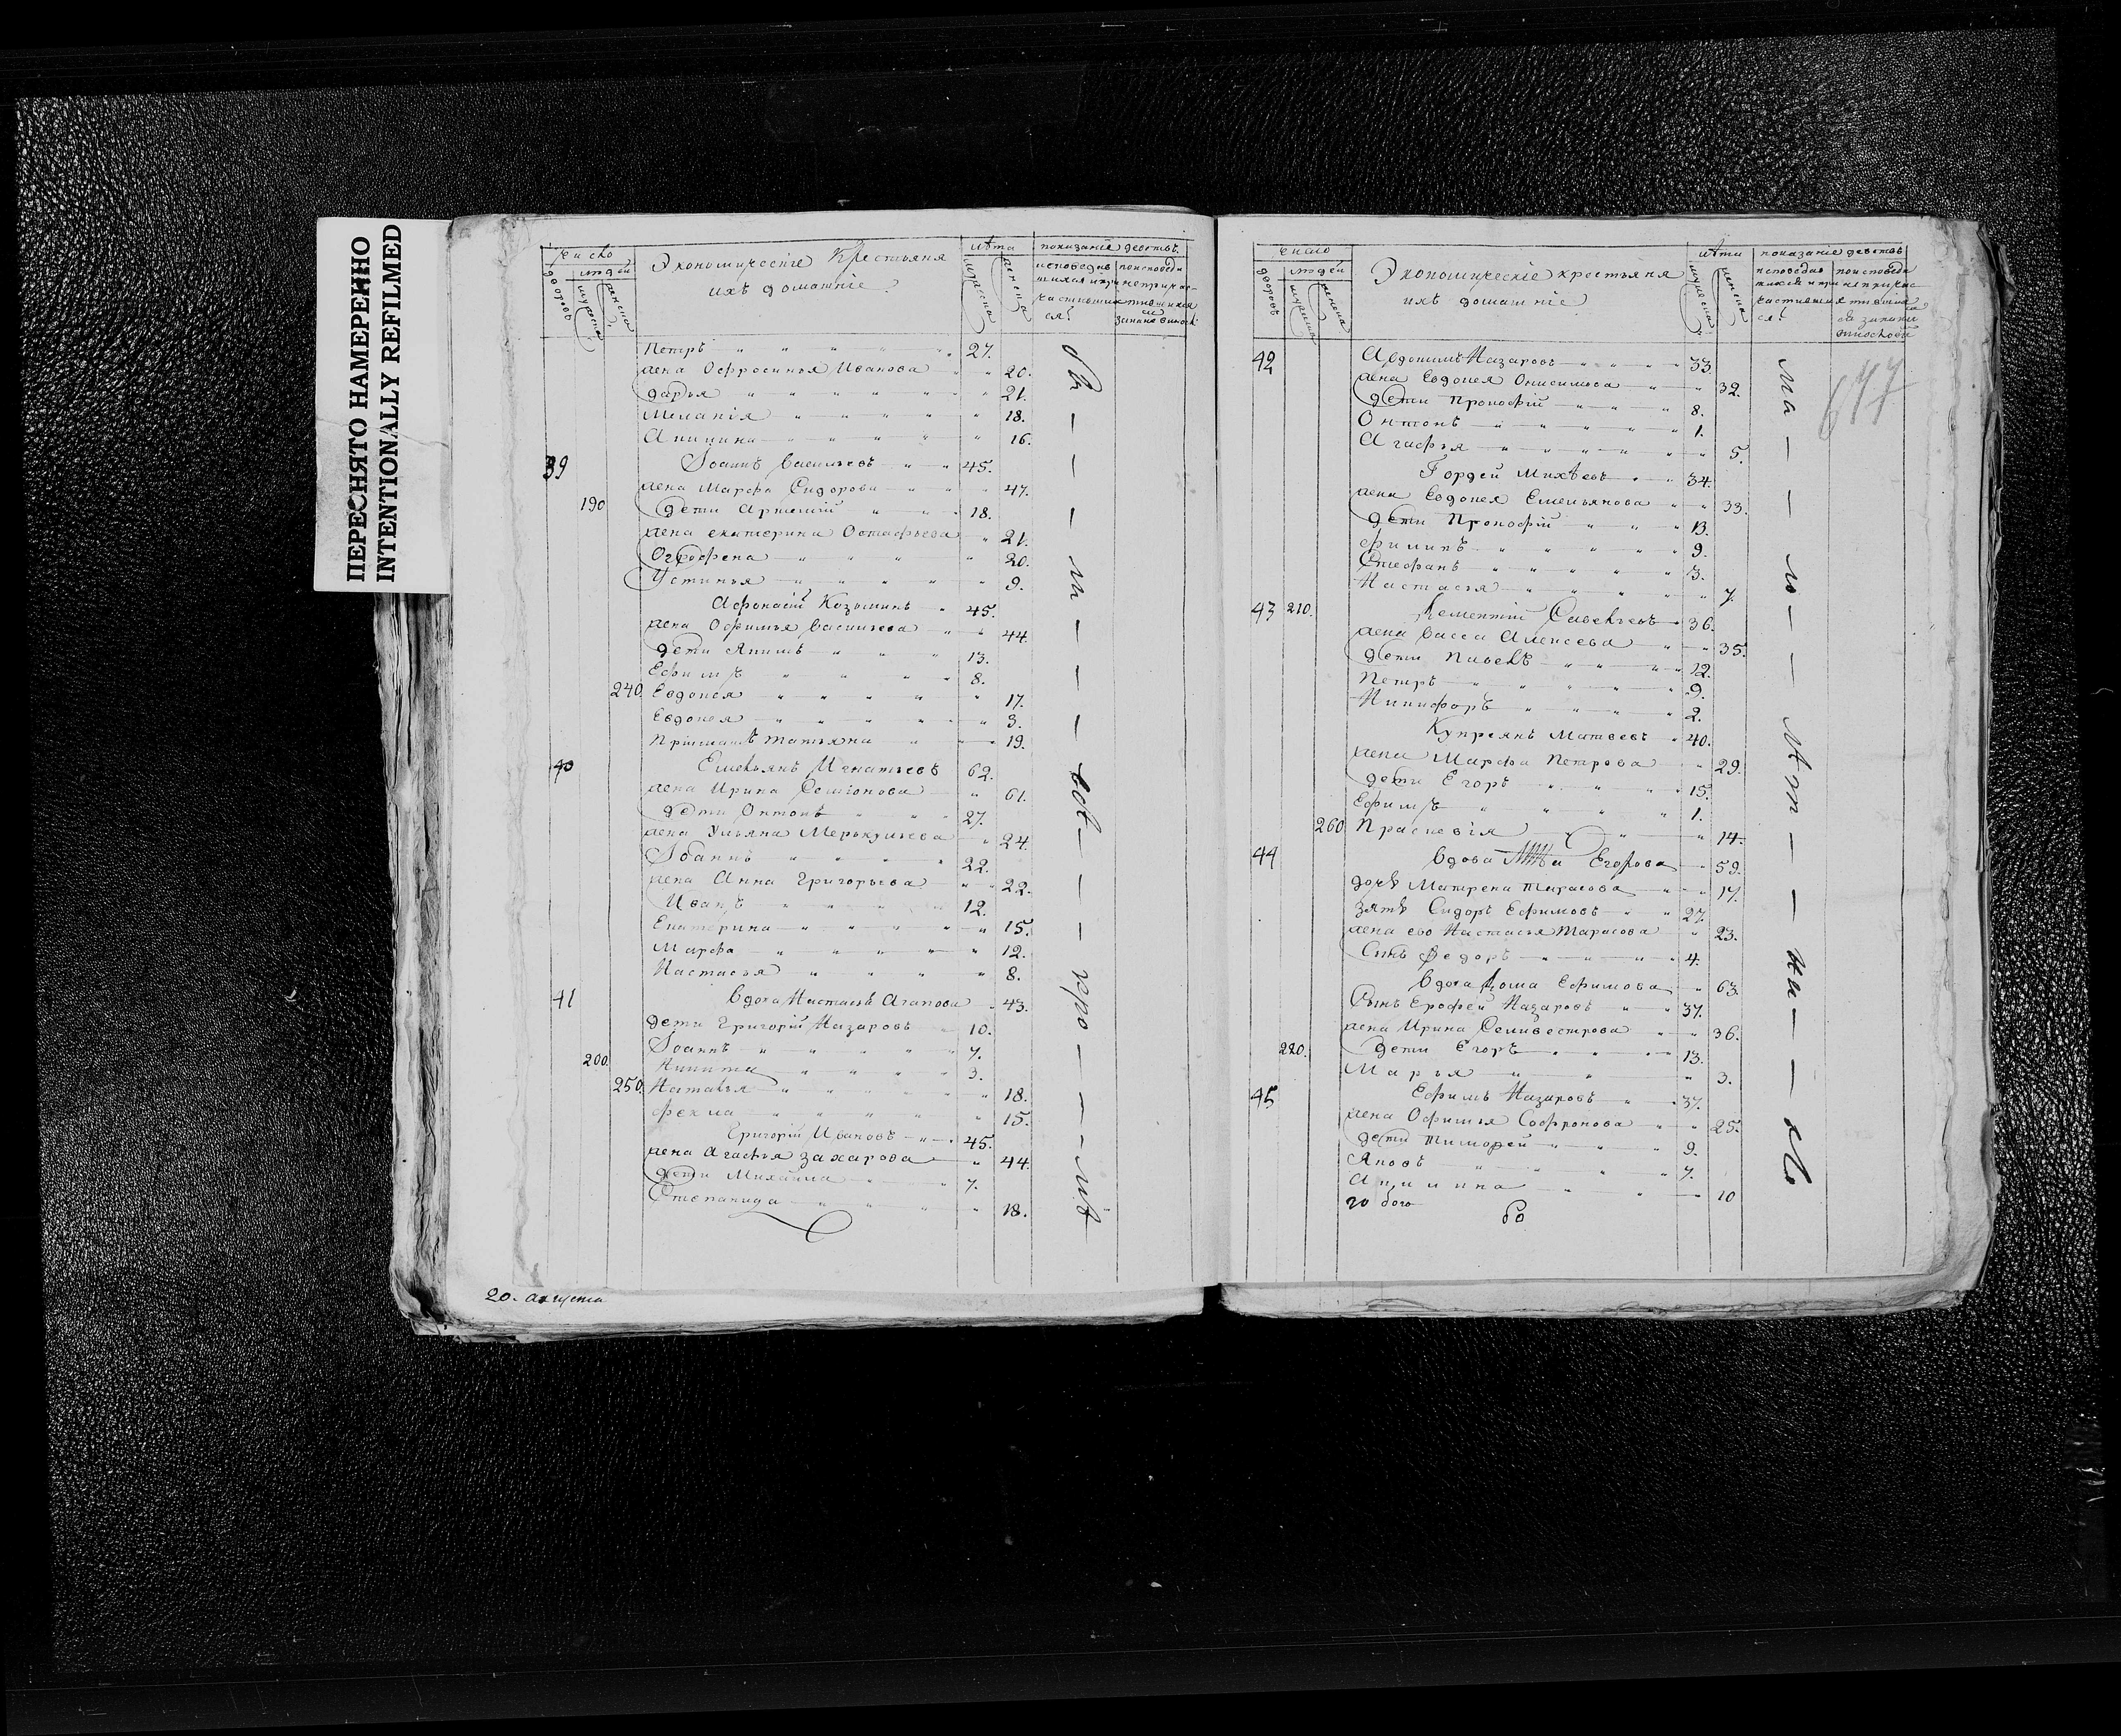 ПЕРЕСНЯТО НАМЕРЕННО
INTENTIONALLY REFILMED
число
людей
дворовъ
мужеска
женска
Экономическіе Крестьяня
ихъ домашніе
лѣта
мужеска
женска
показаніе действъ
Петръ 27.
жена Офросинья Иванова 20.
дарья 21.
Меланія 18.
Акилина 16.
39 Іоаннъ Васильевъ 45.
жена Марфа Сидорова 47.
190 дети Артемій 18.
жена екатерина Остафьева 21.
Огрофена 20.
Устинья 9.
Афонасій Козьминъ 45.
жена Офимья Васильева 44.
дети Якимъ 13.
Ефимъ 8.
240 Евдокея 17.
Евдокея 3.
Татьяна 19.
40 Емельянъ Игнатьевъ 62.
жена Ирина Семіонова 61.
дети Онтонъ 27.
жена Ульяна Меркульева 24.
Іоаннъ 22.
жена Анна Григорьева 22.
Иванъ 12.
Екатерина 15.
Марфа 12.
Настасья 8.
41 Вдова Настасья Агапова 43.
дети Григорій Назаровъ 10.
Іоаннъ 7.
200. Никита 3.
250. Наталья 18.
Фекла 15.
Григорій Ивановъ 45.
жена Агафья Захарова 44.
дети Михайла 7.
Степанида 18.
20. августа
число
людей
дворовъ
мужеска
женска
Экономическіе крестьяня
ихъ домашніе
лѣта
мужеска
женска
показаніе действъ
647
42 Авдокимъ Назаровъ 33
жена Евдокея Онисимова 32.
дети Прокофій 8.
Онтонъ 1.
Агафья 5.
Гордей Михѣевъ 34.
жена Евдокея Емельянова 33.
дети Прокофій 13.
Филипъ 9.
Стефанъ 3.
Настасья 7.
43 210. Клементій Савельевъ 36.
жена Васса Алексеева 35.
дети Павелъ 12.
Петръ 9.
Никифоръ 2.
Купреянъ Матвеевъ 40.
жена Марфа Петрова 29.
дети Егоръ 15.
Ефимъ 1.
260 Прасковія 14.
44 Вдова Егорова 59.
дочь Матрена Тарасова 17.
зять Сидоръ Ефимовъ 27.
жена ево Настасья Тарасова 23.
Сынъ Федоръ 4.
Вдова Ефимова 63.
Сынъ Ерофей Назаровъ 37.
жена Ирина Селивестрова 36.
220. дети Егоръ 13.
Марья 3.
45 Ефимъ Назаровъ 37.
жена Офимья Софронова 25.
дети Тимофей 9.
Яковъ 7.
Акилина 10